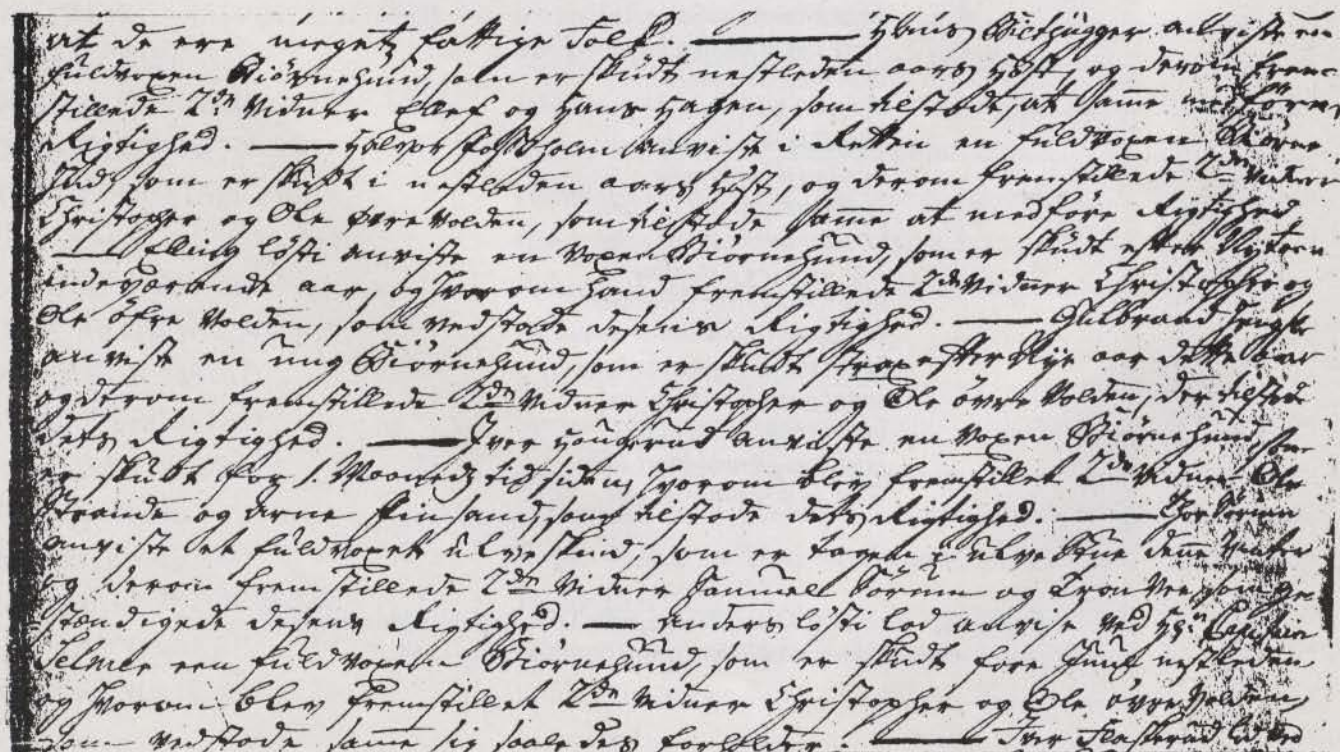 at de ere meget fattige Folk. — Hans Bilthugger anviste en
fuldvoxen Biørnehuud, som er skudt nestleden aars Høst, og derom frem-
stillede 2de Vidner Ellef og Hans Hagen, som tilstode, at samme medfører
Rigtighed. — Halvor anviste i Retten en fuldvoxen Biørne
Hud, som er skudt i nestleden aars Høst, og derom fremstillede 2de Vidner
Christopher og Ole øvre Volden, som tilstode samme at medføre Rigtighed
— Elling løsti anviste en voxen Biørnehuud, som er skudt efter Nytaar
indeværende aar, og hvorom hand fremstillede 2de Vidner Christopher og
Ole öfre Volden, som vedstode desens Rigtighed. — Gulbrand
anviste en ung Biørnehuud, som er skudt strax efter Nye aar dette aar
og derom fremstillede 2de Vidner Christopher og Ole øvre Volden, der tilstod
dets Rigtighed. — Iver Hougerud anviste en voxen Biørnehuud, som
er skudt for 1. Maaneds tid siden, hvorom blev fremstillet 2de Vidner Ole
Strande og Arne Finsand, som tilstode dets Rigtighed. — Tor Sørum
anviste et fuldvoxet ulveskind, som er tagen i ulve Stue denne Vinter
og derom fremstillede 2de Vidner Sammel Sørum og Tron Vee, som ge-
stændigede desens Rigtighed. — Anders løsti lod anvise ved Hr. Capitain
een fuldvoxen Biørnehuud, som er skudt fore Juul nestleden
og hvorom blev fremstillet 2de Vidner Christopher og Ole øvre Volden,
som vedstode samme sig saaledes forholder. — Iver lod ved